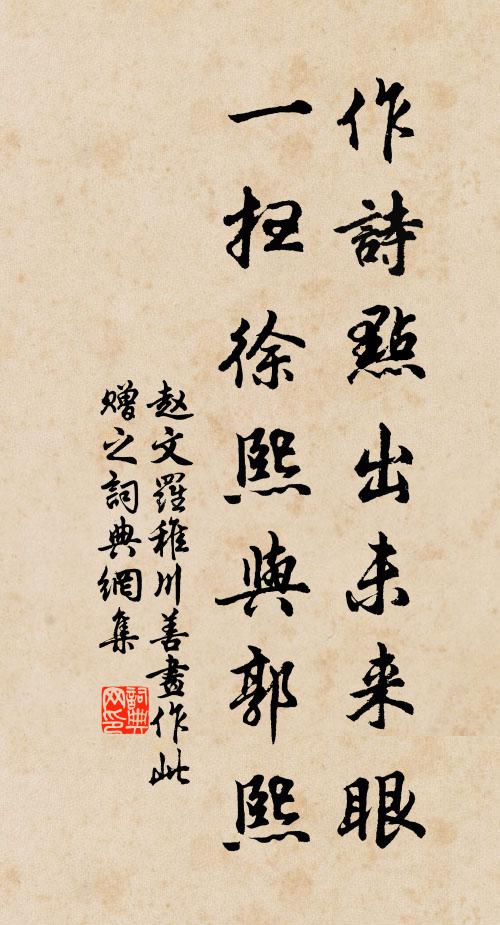 作詩點出未来眼
一扫徐熙與郭熙
赵文羅稚川善畫作此
赠之詞典網集
詞典网印